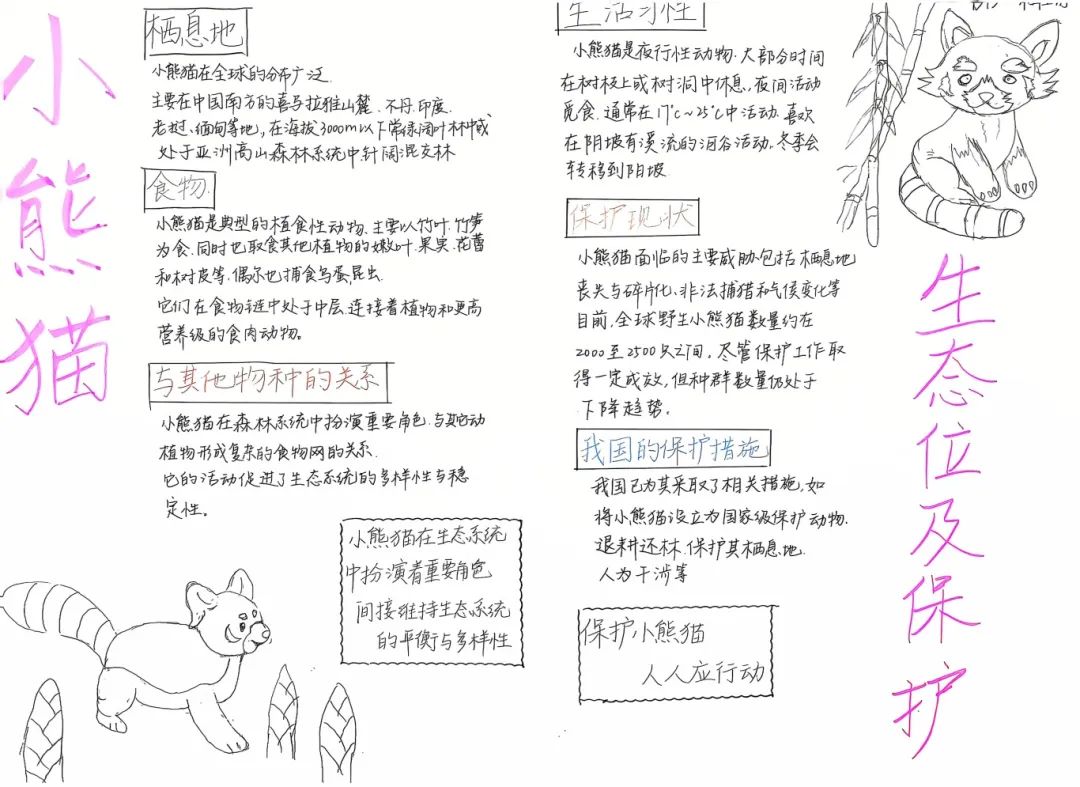 小熊猫
栖息地
小熊猫在全球的分布广泛.
主要在中国南方的喜马拉雅山麓、不丹、印度.
老挝、缅甸等地,在海拔3000m以下常绿阔叶林中或
处于亚洲高山森林系统中针阔混交林
食物.
小熊猫是典型的植食性动物.主要以竹叶.竹笋
为食.同时也取食其他植物的嫩叶.果实.花蕾
和树皮等.偶尔也捕食鸟蛋,昆虫.
它们在食物链中处于中层.连接着植物和更高
营养级的食肉动物。
与其他物种的关系
小熊猫在森林系统中扮演重要角色.与其它动
植物形成复杂的食物网的关系.
它的活动促进了生态系统的多样性与稳
定性。
小熊猫在生态系统
中扮演着重要角色
间接维持生态系统
的平衡与多样性
生活习性
小熊猫是夜行性动物.大部分时间
在树枝上或树洞中休息,夜间活动
觅食.通常在17℃~25℃中活动.喜欢
在阴坡有溪流的河谷活动.冬季会
转移到阳坡
保护现状
小熊猫面临的主要威胁包括栖息地
丧失与碎片化、非法捕猎和气侯变化等
目前,全球野生小熊猫数量约在
2000至2500只之间,尽管保护工作取
得一定成效,但种群数量仍处于
下降趋势。
我国的保护措施
我国已为其采取了相关措施,如
将小熊猫设立为国家级保护动物.
退耕还林.保护其栖息地.
人为干涉等
保护小熊猫
人人应行动
生态位及保护